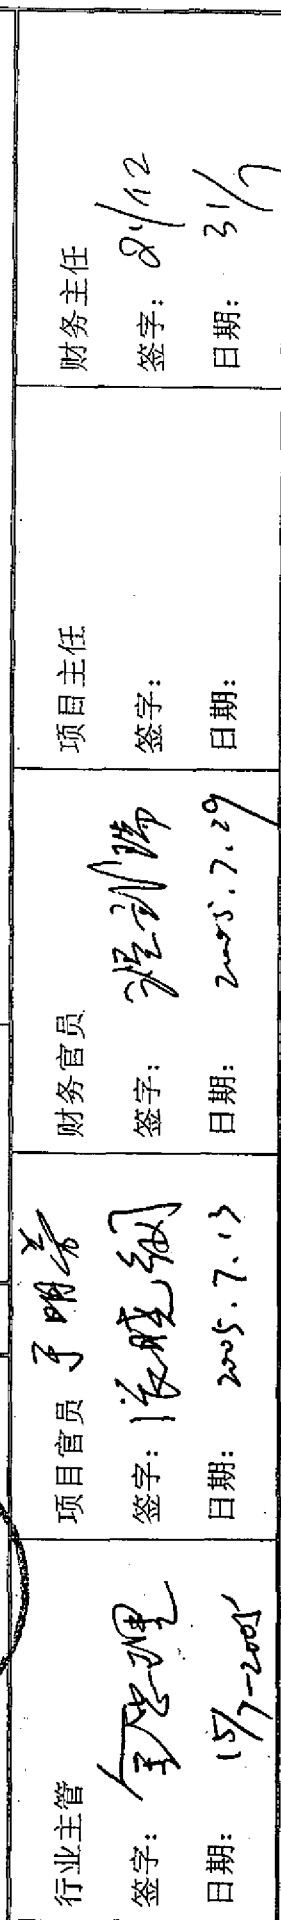 行业主管
签字：
日期： 15/7-2005
项目官员 于明芳
签字： 张晓纲
日期： 2005.7.13
财务官员
签字：
日期： 2005.7.29
项目主任
签字：
日期：
财务主任
签字：
日期： 31/7